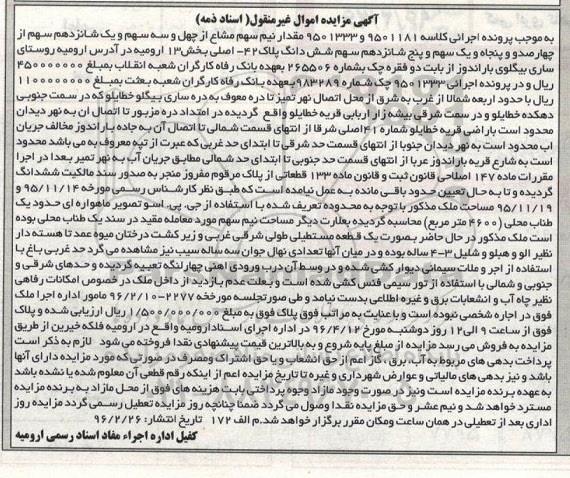 آگهی مزایده اموال غیرمنقول( اسناد ذمه)
به موجب پرونده اجرائی کلاسه ۹۵۰۱۱۸۱ و ۹۵۰۱۳۳۳ مقدار نیم سهم مشاع از چهل و سه سهم و یک شانزدهم سهم از
چهارصدو و پنجاه و یک سهم و پنج شانزدهم سهم شش دانگ پلاک ۴۲- اصلی بخش ۱۳ ارومیه در آدرس ارومیه روستای
ساری بیگلوی باراندوز از بابت دو فقره چک بشماره ۲۶۵۵۰۶ بعهده بانک رفاه کارگران شعبه انقلاب بمبلغ ۴۵۰۰۰۰۰۰۰
ریال و در پرونده اجرائی ۹۵۰۱۳۳۳ چک شماره ۹۸۳۲۸۹ بعهده بانک رفاه کارگران شعبه بعثت بمبلغ ۱۱۰۰۰۰۰۰۰۰
ریال با حدود اربعه شمالا از غرب به شرق از محل اتصال نهر تمیز تا دره معوف به دره ساری بیگلو خطایلو که در سمت جنوبی
دهکده خطایلو و در سمت شرقی بیشه زار اربابی قریه خطایلو واقع گردیده در امتداد دره مزبور تا اتصال ان به نهر دیدان
محدود است باراضی قریه خطایلو شماره ۴۱ اصلی شرقا از انتهای قسمت شمالی تا اتصال آن به جاده باراندوز مخالف جریان
اب محدود است به نهر دیدان جنوبا از انتهای قسمت حد شرقی تا ابتدای حد غربی که عبرت از تپه معروف به می باشد محدود
است به شارع قریه باراندوز عربا از انتهای قسمت حد جنوبی تا ابتدای حد شمالی مطابق جریان آب به نهر تمیر بعدا در اجرا
مقررات ماده ۱۴۷ اصلاحی قانون ثبت و قانون ماده ۱۳۳ قطعاتی از پلاک مرقوم مفروز منجر به صدور سند مالکیت ششدانگ
گردیده و تا به حال تعیین حدود باقی مانده به عمل نیامده است که طبق نظر کارشناس رسمی مورخه ۹۵/۱۱/۱۴ و
۹۵/۱۱/۱۹ مساحت ملک مذکور با توجه به محدوده تعریف شده با استفاده از جی. پی. اسو تصویر ماهواره ای حدود یک
طناب محلی (۴۶۰۰ متر مربع) محاسبه گردیده بعبارت دیگر مساحت نیم سهم مورد معامله مقید در سند یک طناب محلی بوده
است ملک مذکور در حال حاضر بصورت یک قطعه مستطیلی طولی شرقی غربی و زیر کشت درختان میوه عمد تا هسته دار
نظیر الو و هلو و شلیل ۳-۴ ساله بوده و در میان آنها تعدادی نهال جوان سه ساله سیب نیز مشاهده می گردد حد غربی باغ با
استفاده از اجر و ملات سیمانی دیوار کشی شده و در وسط آن درب ورودی اهنی چهارلنگه تعبیه گردیده و حدهای شرقی و
جنوبی و شمالی با استفاده از تور سیمی فنس کشی شده است و بعلت عدم بازدید از داخل ملک در خصوص امکانات رفاهی
نظیر چاه آب و انشعابات برق و غیره اطلاعی بدست نیامد و طی صورتجلسه مورخه ۲۲۷۷-۹۶/۲/۱۰ مامور اداره اجرا ملک
فوق در اجاره شخصی نبوده است و باعنایت به مراتب فوق پلاک فوق به مبلغ ۱/۵۰۰/۰۰۰/۰۰۰ ریال ارزیابی شده و پلاک
فوق از ساعت ۹ الی ۱۲ روز دوشنبه مورخ ۹۶/۴/۱۲ در اداره اجرای اسنادارومیه واقع در ارومیه فلکه خیرین از طریق
مزایده به فروش می رسد مزایده از مبلغ پایه شروع و به بالاترین قیمت پیشنهادی نقدا فروخته می شود لازم به ذکر است
پرداخت بدهی های مربوط به آب، برق، گاز اعم از حق انشعاب و یا حق اشتراک ومصرف در صورتی که مورد مزایده دارای آنها
باشد و نیز بدهی های مالیاتی و عوارض شهرداری و غیره تا تاریخ مزایده اعم از اینکه رقم قطعی آن معلوم شده یا نشده باشد
به عهده برنده مزایده است ونیز در صورت وجود مازاد وجوه پرداختی بابت هزینه های فوق از محل مازاد به برنده مزایده
مسترد خواهد شد و نیم عشر و حق مزایده نقدا وصول می گردد ضمنا چنانچه روز مزایده تعطیل رسمی گردد مزایده روز
اداری بعد از تعطیلی در همان ساعت ومکان مقرر برگزار خواهد شد.م الف ۱۷۲ تاریخ انتشار: ۹۶/۲/۲۶
کفیل اداره اجراء مفاد اسناد رسمی ارومیه